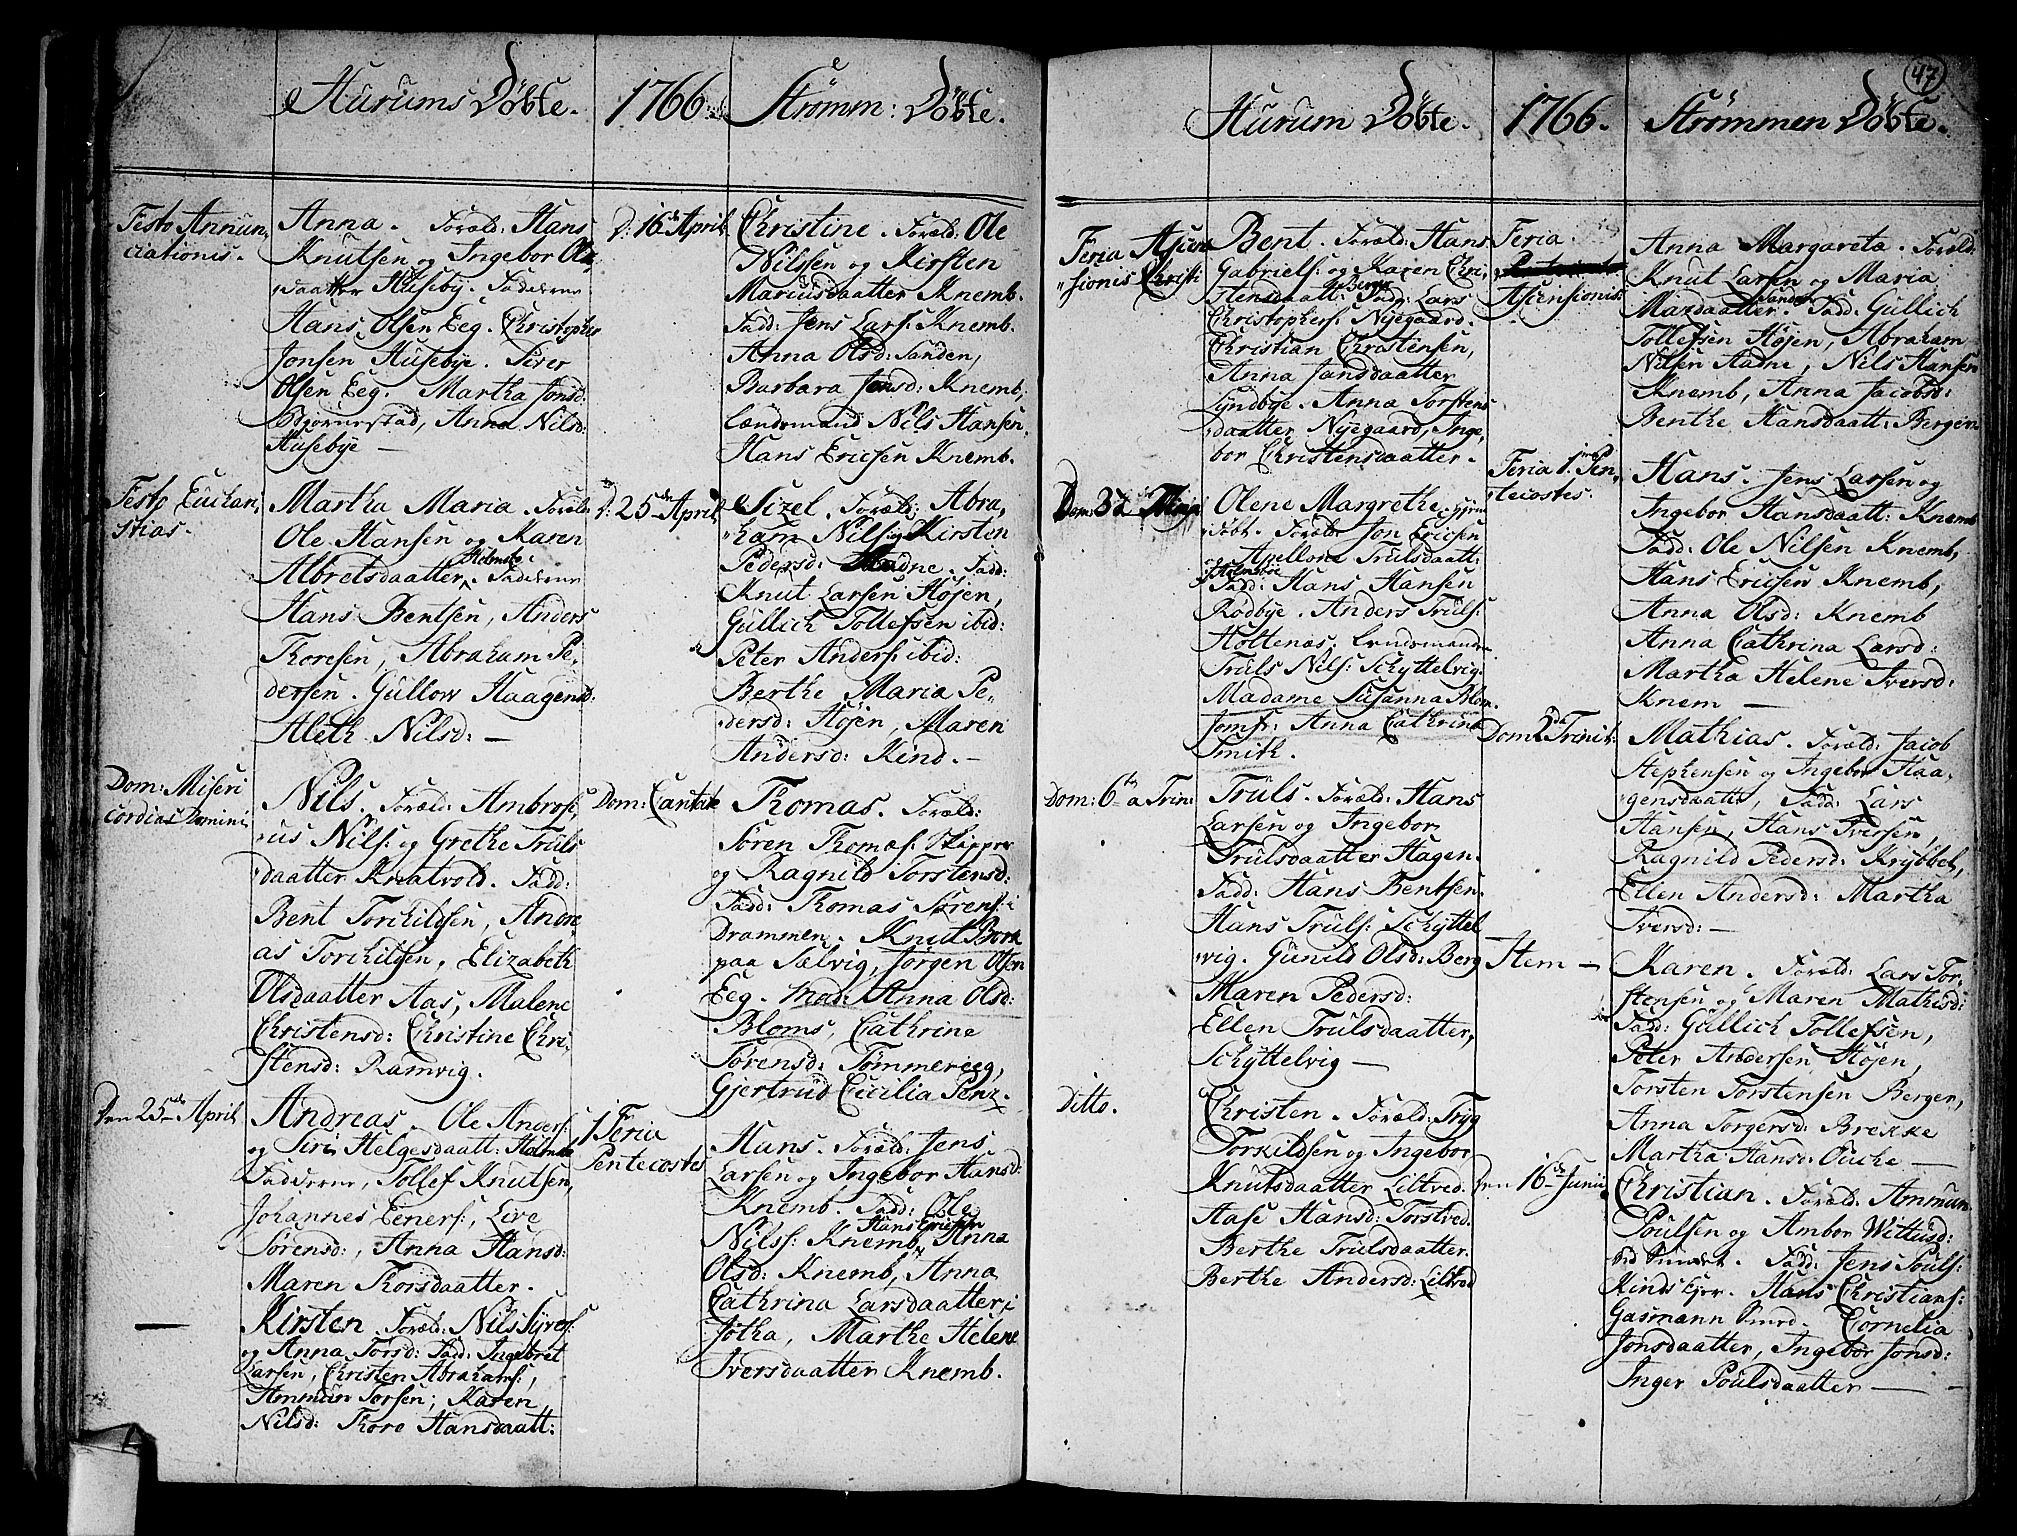 Hurums Döbte.
Festo Annun¸
ciationis.
Anna. Foræld: Hans
Knutsen og Ingebor Ols¸
daatter Huseby. Fadderne
Hans Olsen Eeg. Christopher
Jonsen Husebye. Siver
Olsen Eeg. Martha Jonsd:
Bjørnestad, Anna Nilsd:
Husebye —
Festo Eucha¸
stias.
Martha Maria. Foræld:
Ole Hansen og Karen
Albretsdaatter Holmsbo. Fadderne
Hans Bentsen, Anders
Thoresen, Abraham Pe¸
dersen. Gullow Haagensd:
Aleth Nilsd: —
Dom: Miseri
cordias Domini
Nils. Foræld: Ambrosi¸
us Nils: og Grethe Truls
daatter Knatvold. Fadd:
Bent Torkildsen, Andre
as Torkilsen, Elizabeth
Olsdaatter Aas, Malene
Christensd: Christine Chri¸
stensd: Ramvig.
Den 25de April
Andreas. Ole Anders:
og Siri Helgesdaatt: Holmsbo
Fadderne, Tollef Knutsen,
Johannes Einers:, Live
Sørensd:, Anna Hansd:
Maren Thorsdaatter.
—
Kirsten. Foræld: Nils Syvers:
og Anna Torsd: Fad: Ingebret
Larsen, Christen Abrahams:,
Ammun Torsen; Karen
Nilsd: Thore Hansdaatt:
1766
Strømm: Döbte.
D: 16de April
Christine. Foræld: Ole
Nilssen og Kirsten
Mariusdaatter Knemb.
Fadd: Jens Lars: Knemb.
Anna Olsd: Sanden,
Barbara Jensd: Knemb,
Lændsmand Nils Hansen
Hans Ericsen Knemb.
D: 25de April
Sizel. Foræld: Abra¸
ham Nils: og Kirsten
Pedersd: Aadne. Fadd:
Knut Larsen Höjen,
Gullich Tollefsen ibid:
Peter Anders: ibid:
Berthe Maria Pe¸
dersd: Höjen, Maren
Andersd: Kind. —
Dom: Cantate
Thomas. Foræld:
Sören Thomæs: Skipper
og Ragnild Torstensd:
Fadd: Thomas Sørens: i
Drammen. Knut Bork
paa Sælvig, Jørgen Olsen
Eeg. Mad: Anna Olsd:
Bloms, Cathrine
Sørensd: Tømmereeg,
Gjertrud Cicilia Penz.
1 Feria
Pentecostes
Hans. Foræld: Jens
Larsen og Ingebor Hansd:
Knemb. Fadd: Ole
Nilss: Knemb, Hans Ericsen Anna
Olsd: Knemb, Anna
Cathrina Larsdaatter i
Jötha, Marthe Helene
Iversdaatter Knemb.
47
Hurum Döbte.
Feria Ascen
sionis Christi
Bent. Foræld: Hans
Gabriels: og Karen Chri¸
stensdaatt: Berge Fadd: Lars
Christophers: Nyegaard.
Christian Christensen,
Anna Jansdaatter
Lyndbye. Anna Torstens
daatter Nyegaard, Inge¸
bor Christensdaatter.
Dom: 3d
Olene Margrethe. Hjem
döbt. Foræld: Jon Ericsen
og Apellone Trulsdaatt:
Holmsboe Fadd: Hans Hansen
Rødbye. Anders Truls:
Holtenæs, Lændsmand
Truls Nils: Schyttelvig.
Madame Susanna Blom.
Jomf: Anna Cathrine
Smith.
Dom: 6ta Trin:
Truls. Foræld: Hans
Larsen og Ingebor
Trulsdaatter Hagen.
Fadd: Hans Bentsen.
Hans Truls: Schyttel
vig. Gunild Olsd: Berg
Maren Pedersd:
Ellen Trulsdaatter,
Schyttelvig —
Ditto.
Christen. Foræld: Tryg
Torkildsen og Ingebor
Knutsdaatter Liltved.
Aase Hansd: Torstved.
Berthe Trulsdaatter.
Berthe Andersd: Liltved
1766.
Strömmen Döbte.
Feria
Ascensionis:
Anna Margareta. Foræld:
Knut Larsen og Maria
Mazdaatter Sanden. Fadd: Gullich
Tollefsen Höjen, Abraham
Nilsen Aadne, Nils Hansen
Knemb, Anna Jacobsd:
Benthe Hansdaatt: Bergen
Feria 1ma Pen¸
tecostes.
Hans. Jens Larsen og
Ingebor Hansdaatt: Knemb
Fadd: Ole Nilsen Knemb,
Hans Ericsen Knemb,
Anna Olsd: Knemb
Anna Cathrina Larsd:
Martha Helene Iversd:
Knem —
Dom 2da Trinit:
Mathias. Foræld: Jacob
Stephensen og Ingebor Haa¸
gensdaatt:, Fadd: Lars
Hansen, Hans Iversen,
Ragnild Pedersd: Krybbel,
Ellen Andersd: Martha
Iversd: —
Item —
Karen. Foræld: Lars Tor¸
stensen og Maren Mathisd:
Fadd: Gullich Tollefsen,
Peter Andersen Höjen,
Torsten Torstensen Bergen,
Anna Torgersd: Brekke
Martha Hansd: Ouche —
Den 16de Junii
Christian. Foræld: Ammun
Poulsen og Ambor Wittusd:
ved Svindet. Fadd: Jens Pouls:
Kinds Ejer. Hans Christians:
Gasmann Svird. Cornelia
Jonsdaatter, Ingebor Jonsd:
Inger Poulsdaatter —